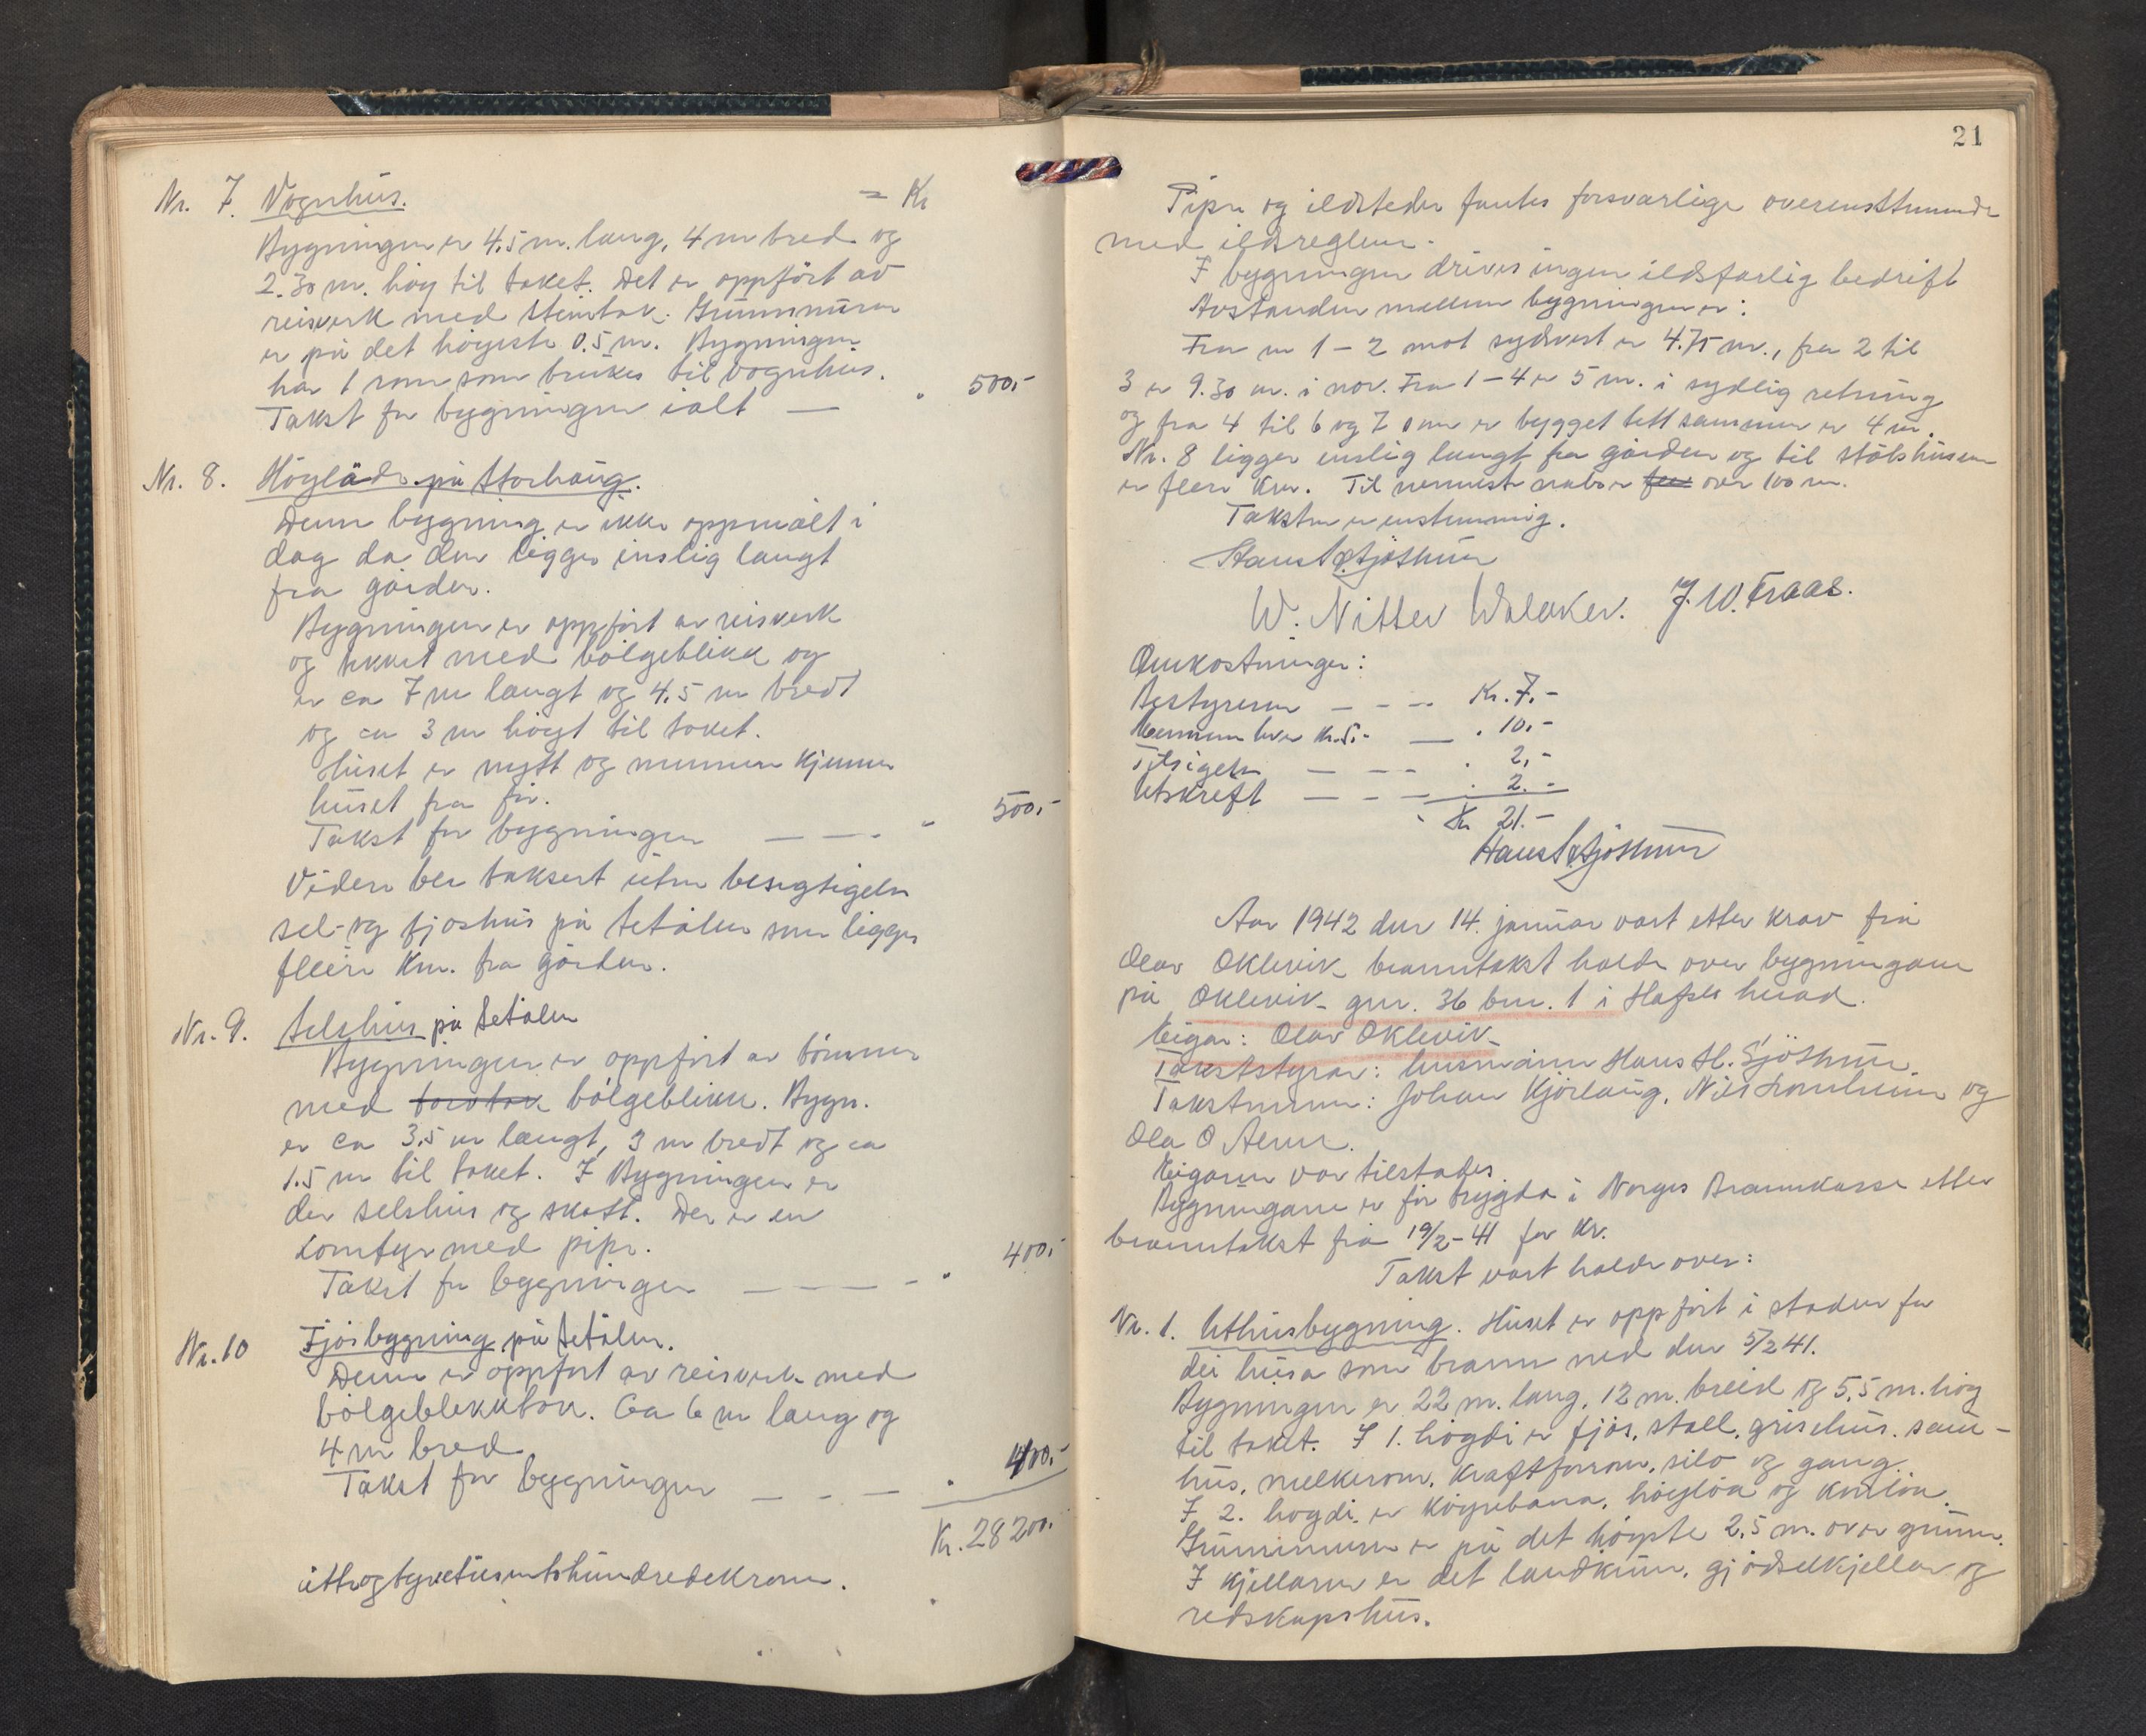 Nr. 7. Vognhus. = Kr
Bygningen er 4.5 m. lang, 4 m bred og
2.30 m. høy til taket. Det er oppført av
reisverk med steintak. Grunnmuren
er på det høyeste 0.5 m. Bygningen
har 1 rom som brukes til vognhus.
Takst for bygningen ialt — " 500,-
Nr. 8. Høyløde på Storhaug.
Denne bygning er ikke oppmålt i
dag da den ligger enslig langt
fra gården.
Bygningen er oppført av reisverk
og tekket med bølgeblikk og
er ca 7 m langt og 4.5 m bredt
og ca 3 m høyt til taket.
Huset er nytt og mennene kjenner
huset fra før.
Takst for bygningen — — - " 500,-
Videre ble taksert uten besigtigelse
sel- og fjøshus på Setålen som ligger
fleire km. fra gården.
Nr. 9. Selshus på Setålen
Bygningen er oppført av tømmer
med torvtak bølgeblikk. Bygn.
er ca 3.5 m langt, 3 m bredt og ca
1.5 m til taket. I Bygningen er
der selshus og skott. Der er en
komfyr med pipe.
Takst for bygningen — — — - " 400,-
Nr. 10 Fjøsbygning på Setålen.
Denne er oppført av reisverk med
bølgeblikktak. Ca 6 m lang og
4 m bred
Takst for bygningen — - — " 400,-
Kr. 28200,-
åtteogtyvetusentohundredekroner.
21
Piper og ildsteder fantes forsvarlige overensstemmende
med ildsreglene.
I bygningen drives ingen ildsfarlig bedrift
Avstanden mellem bygningen er:
Fra nr 1 - 2 mot sydvest er 4.75 m., fra 2 til
3 er 9.30 m. i nov. Fra 1 - 4 er 5 m. i sydlig retning
og fra 4 til 6 og 7 som er bygget tett sammen er 4 m.
Nr. 8 ligger enslig langt fra gården og til stølshusene
er flere km. Til nermeste nabo er over 100 m.
Taksten er enstemmig.
Hans H Sjøthun
W. Nitter Walaker. J. W. Fraas.
Omkostninger:
Bestyreren — - - - Kr. 7.-
Mennene hver kr. 5.- — " 10.-
Tilsigelse — - — - " 2,-
Utskrift — - - — " 2.-
Kr 21.-
Hans H Sjøthun
Aar 1942 den 14. januar vart etter krav frå
Olav Oklevik branntakst halde over bygningane
på Oklevik gnr. 36 bnr. 1 i Hafslo herad.
Eigar: Olav Oklevik
Takststyrar: lensmann Hans H. Sjøthun.
Takstmenn: Johan Kjørlaug, Nils Lomheim og
Ola O Alme.
Eigaren var tilstades.
Bygningane er før trygda i Norges Brannkasse etter
branntakst frå 19/2-41 for kr.
Takst vart halde over:
Nr. 1. Uthusbygning. Huset er oppført i staden for
dei husa som brann ned den 5/2 41.
Bygningen er 22 m. lang, 12 m. breid og 5,5 m. høg
til taket. I 1. høgdi er fjøs, stall, grisehus, saue-
hus, melkerom, kraftforrom, silo og gang.
I 2. høgdi er køyrebana, høyløa og kornløa.
Grunnmuren er på det høyste 2,5 m. over grunn.
I kjellaren er det landkum, gjødselkjellar og
redskapshus.